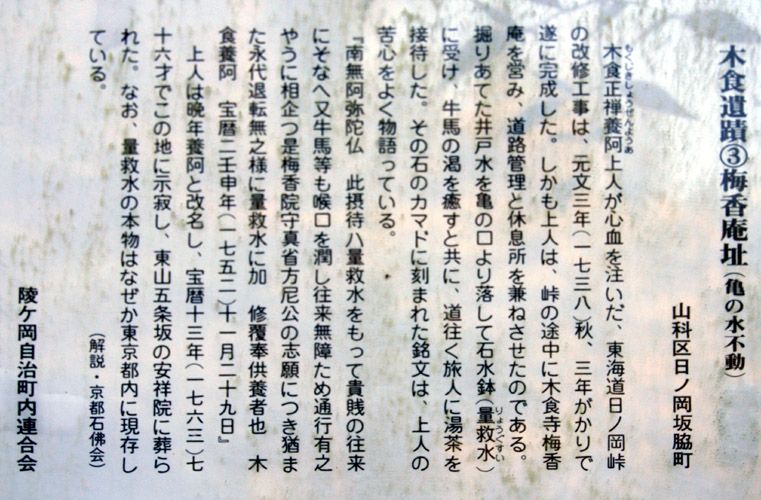 木食遺蹟③梅香庵址(亀の水不動)
山科区日ノ岡坂脇町
木食正禅養阿上人が心血を注いだ、東海道日ノ岡峠
もくじきしょうぜんようあ
の改修工事は、元文三年(一七三八)秋、三年がかりで
遂に完成した。しかも上人は、峠の途中に木食寺梅香
庵を営み、道路管理と休息所を兼ねさせたのである。
掘りあてた井戸水を亀の口より落して石水鉢(量救水)
りょうぐすい
に受け、牛馬の渇を癒すと共に、道往く旅人に湯茶を
接待した。その石のカマドに刻まれた銘文は、上人の
苦心をよく物語っている。
『南無阿弥陀仏 此摂待ハ量救水をもって貴賎の往来
にそなへ又牛馬等も喉口を潤し往来無障ため通行有之
やうに相企つ是梅香院守真省方尼公の志願につき猶ま
た永代退転無之様に量救水に加 修覆奉供養者也 木
食養阿 宝暦二壬申年(一七五二)十一月二十九日』
上人は晩年養阿と改名し、宝暦十三年(一七六三)七
十六才でこの地に示寂し、東山五条坂の安祥院に葬ら
れた。なお、量救水の本物はなぜか東京都内に現存し
ている。
(解説・京都石佛会)
陵ケ岡自治町内連合会